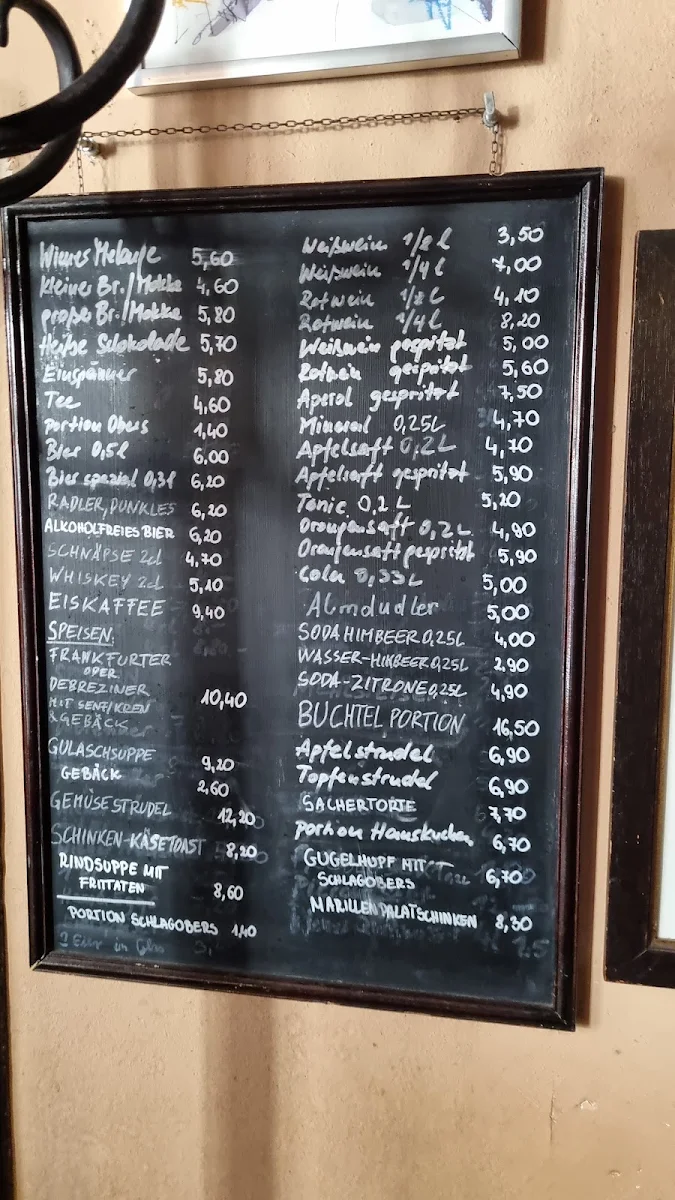 Wiener Melange 5,60
kleiner Br./Mokka 4,60
großer Br./Mokka 5,80
Heiße Schokolade 5,70
Einspänner 5,80
Tee 4,60
Portion Obers 1,40
Bier 0,5l 6,00
Bier spezial 0,3l 6,20
RADLER, DUNKLES 6,20
ALKOHOLFREIES BIER 6,20
SCHNÄPSE 2cl 4,70
WHISKEY 2cl 5,10
EISKAFFEE 9,40
SPEISEN:
FRANKFURTER
ODER
DEBREZINER 10,40
MIT SENF/KREN
&GEBÄCK
GULASCHSUPPE 9,20
GEBÄCK 2,60
GEMÜSESTRUDEL 12,20
SCHINKEN-KÄSETOAST 8,20
RINDSUPPE MIT
FRITTATEN 8,60
PORTION SCHLAGOBERS 1,40
Weißwein 1/8 l 3,50
Weißwein 1/4 l 7,00
Rotwein 1/8 l 4,10
Rotwein 1/4 l 8,20
Weißwein gespritzt 5,00
Rotwein gespritzt 5,60
Aperol gespritzt 7,50
Mineral 0,25L 4,70
Apfelsaft 0,2L 4,70
Apfelsaft gespritzt 5,90
Tonic 0,2L 5,20
Orangensaft 0,2L 4,90
Orangensaft gespritzt 5,90
Cola 0,33L 5,00
Almdudler 5,00
SODA HIMBEER 0,25L 4,00
WASSER-HIMBEER 0,25L 2,90
SODA-ZITRONE 0,25L 4,90
BUCHTEL PORTION 16,50
Apfelstrudel 6,90
Topfenstrudel 6,90
SACHERTORTE 7,70
Portion Hauskuchen 6,70
GUGELHUPF MIT
SCHLAGOBERS 6,70
MARILLENPALATSCHINKEN 8,30